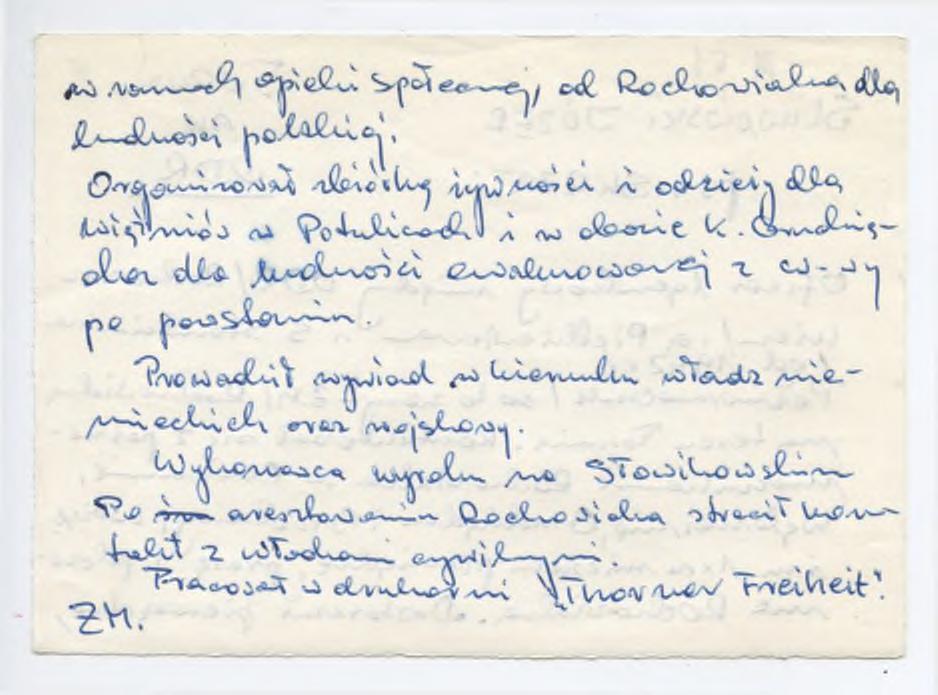 w ramach opieki społecznej, od Rochowiaka dla
ludności polskiej.
Organizował zbiórkę żywności i odzieży dla
więźniów w Potulicach i w obozie k. Grudzią-
dza dla ludności ewakuowanej z W-wy
po powstaniu.
Prowadził wywiad w kierunku władz nie-
mieckich oraz wojskowy.
Wykonawca wyroku na Słowikowskim
Po aresztowaniu Rochowiaka stracił kon-
takt z władzami cywilnymi.
Pracował w drukarni "Thorner Freiheit".
ZM.